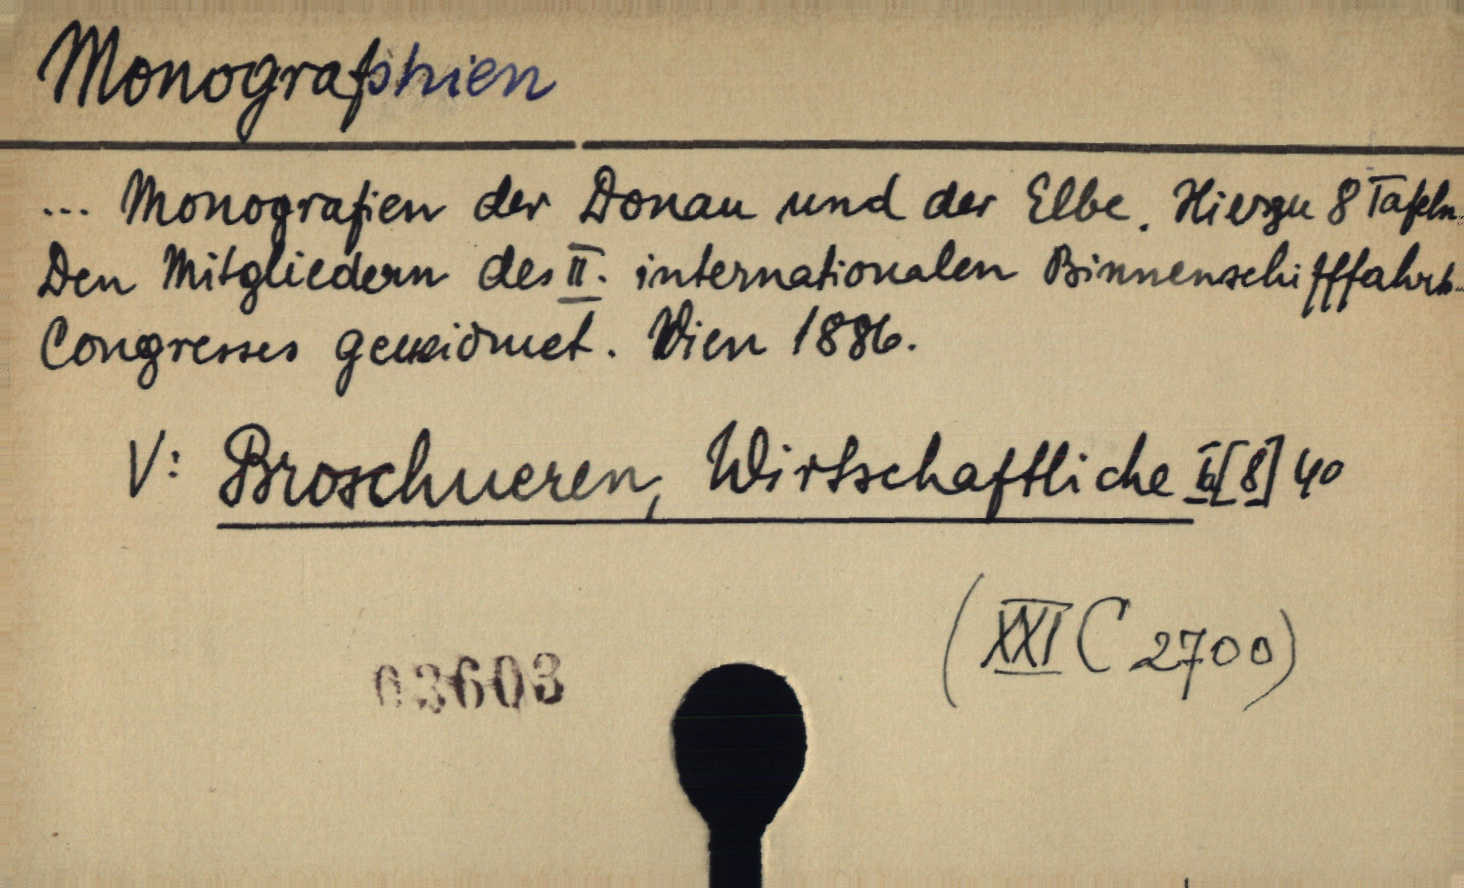 Monographien
... Monografien der Donau und der Elbe. Hierzu 8 Tafeln.
Den Mitgliedern des II. internationalen Binnenschifffahrts-
Congresses gewidmet. Wien 1886.
V: Broschueren, Wirtschaftliche [8] 40
(XXI C 2700)
03603